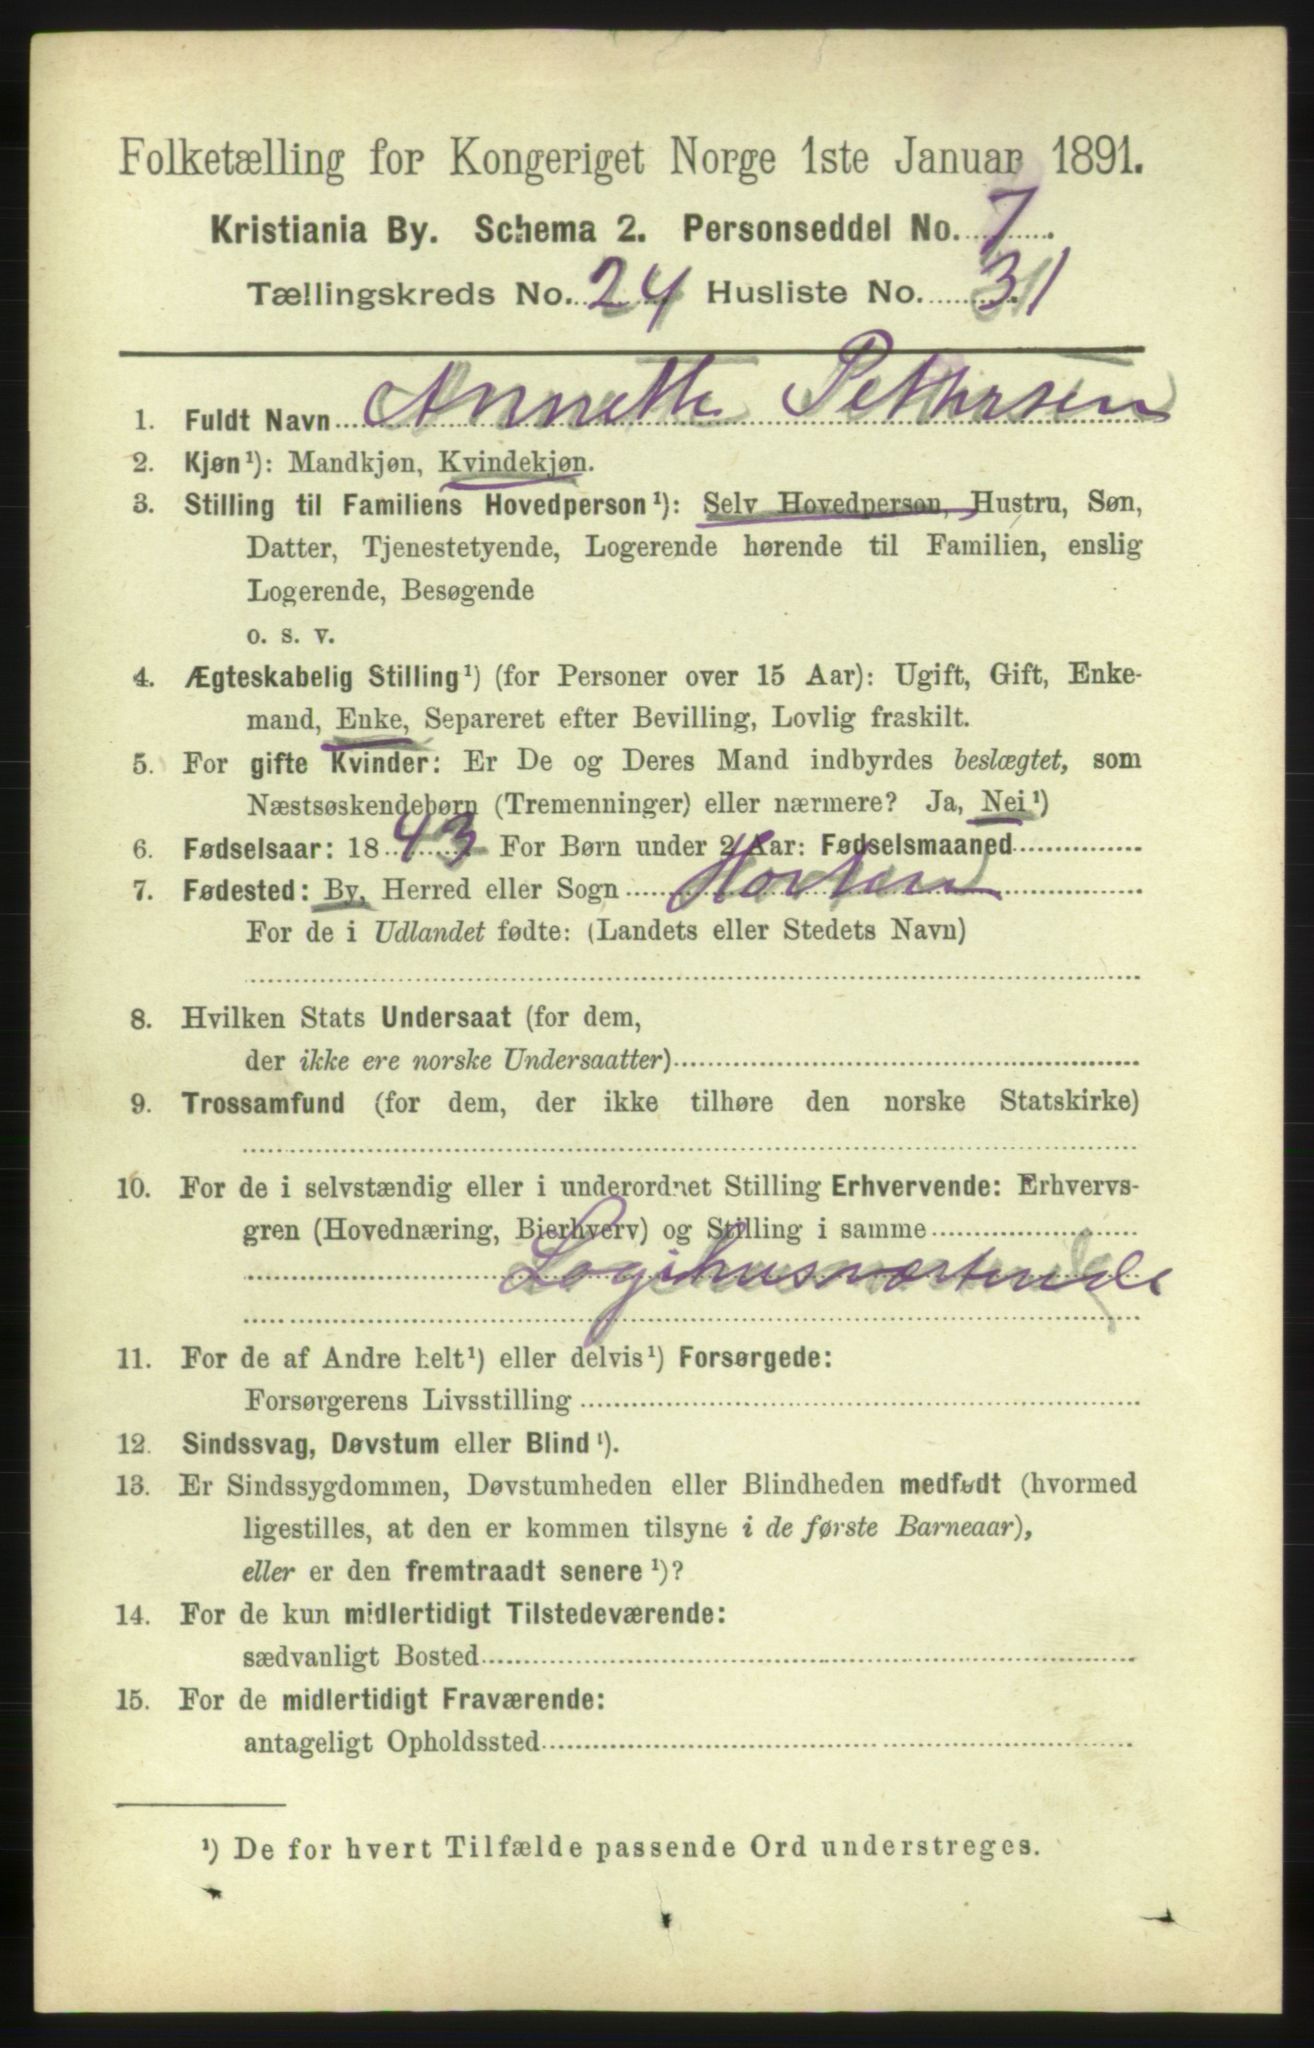 Folketælling for Kongeriget Norge 1ste Januar 1891.
Kristiania By. Schema 2. Personseddel No. 7.
Tællingskreds No. 24 Husliste No. 31
1. Fuldt Navn Annette Pettersen
2. Kjøn¹): Mandkjøn, Kvindekjøn.
3. Stilling til Familiens Hovedperson¹): Selv Hovedperson, Hustru, Søn,
Datter, Tjenestetyende, Logerende hørende til Familien, enslig
Logerende, Besøgende
o. s. v.
4. Ægteskabelig Stilling¹) (for Personer over 15 Aar): Ugift, Gift, Enke-
mand, Enke, Separeret efter Bevilling, Lovlig fraskilt.
5. For gifte Kvinder: Er De og Deres Mand indbyrdes beslægtet, som
Næstsøskendebørn (Tremenninger) eller nærmere? Ja, Nei¹)
6. Fødselsaar: 1843 For Børn under 2 Aar: Fødselsmaaned
7. Fødested: By, Herred eller Sogn Horten
For de i Udlandet fødte: (Landets eller Stedets Navn)
8. Hvilken Stats Undersaat (for dem,
der ikke ere norske Undersaatter)
9. Trossamfund (for dem, der ikke tilhøre den norske Statskirke)
10. For de i selvstændig eller i underordnet Stilling Erhvervende: Erhvervs-
gren (Hovednæring, Bierhverv) og Stilling i samme
Logihusværtinde
11. For de af Andre helt¹) eller delvis¹) Forsørgede:
Forsørgerens Livsstilling
12. Sindssvag, Døvstum eller Blind¹).
13. Er Sindssygdommen, Døvstumheden eller Blindheden medfødt (hvormed
ligestilles, at den er kommen tilsyne i de første Barneaar),
eller er den fremtraadt senere¹)?
14. For de kun midlertidigt Tilstedeværende:
sædvanligt Bosted
15. For de midlertidigt Fraværende:
antageligt Opholdssted
¹) De for hvert Tilfælde passende Ord understreges.